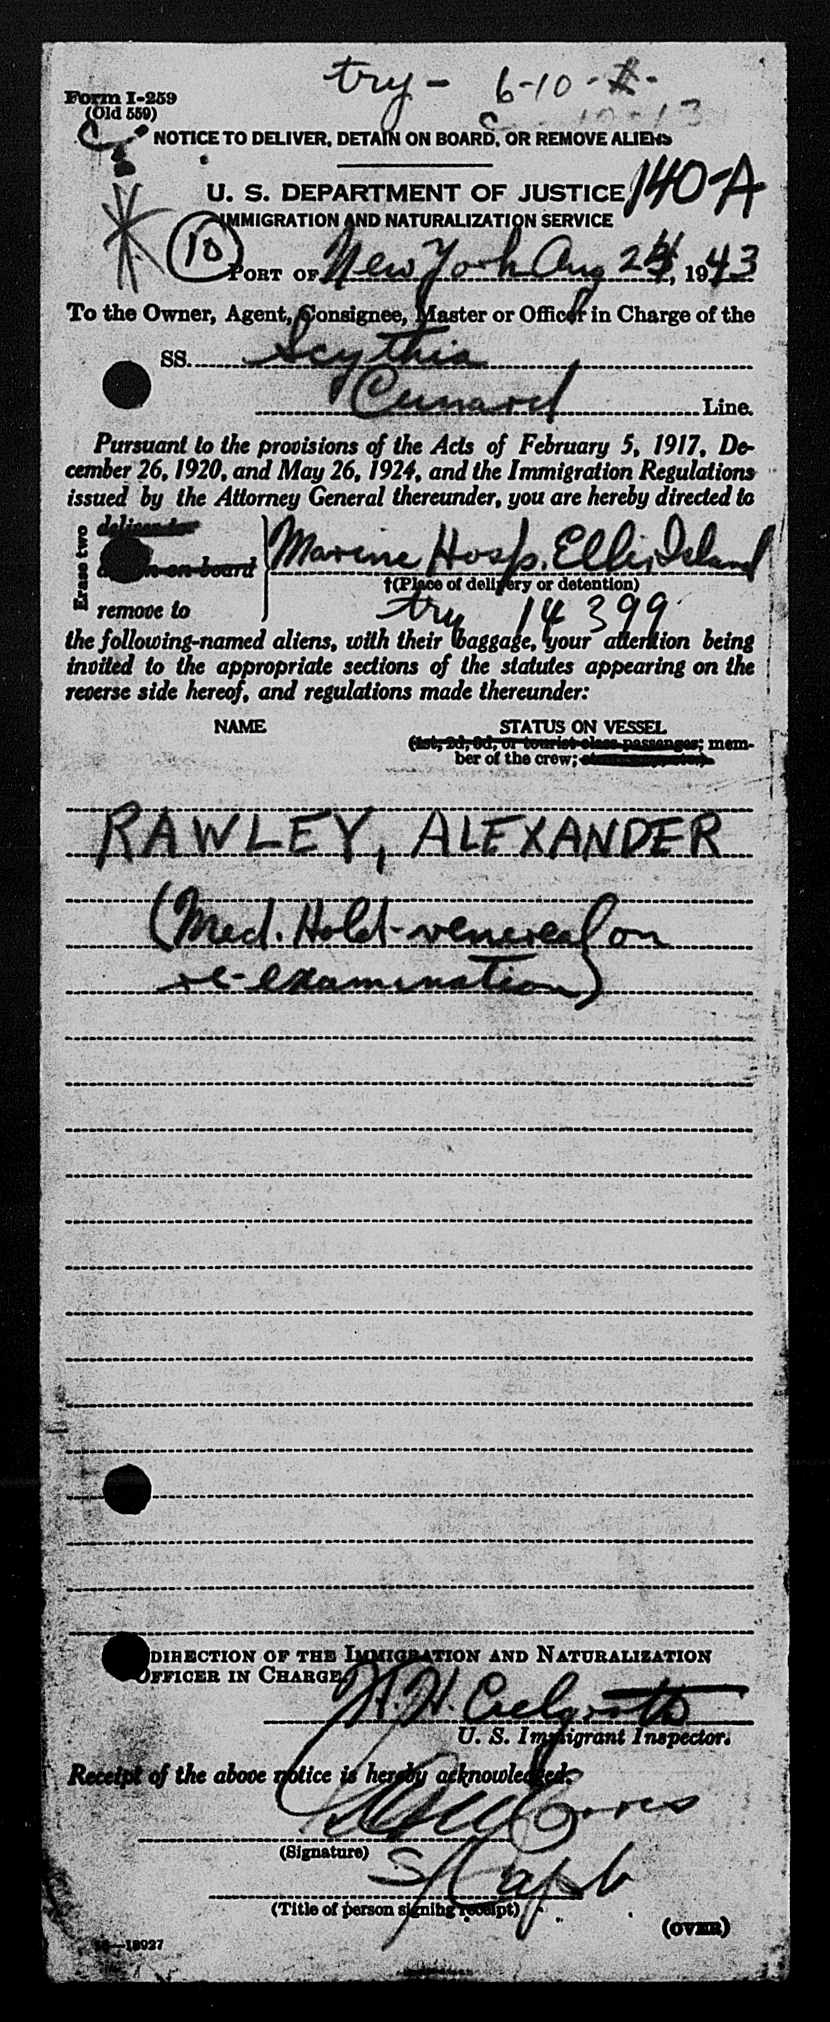 try - 6-10-
Form I-259
(Old 559)
NOTICE TO DELIVER, DETAIN ON BOARD, OR REMOVE ALIENS
U. S. DEPARTMENT OF JUSTICE 140-A
IMMIGRATION AND NATURALIZATION SERVICE
10
PORT OF New York Aug 24, 1943
To the Owner, Agent, Consignee, Master or Officer in Charge of the
SS. Scythia
Cunard Line.
Pursuant to the provisions of the Acts of February 5, 1917, De-
cember 26, 1920, and May 26, 1924, and the Immigration Regulations
issued by the Attorney General thereunder, you are hereby directed to
Erase two
deliver to
on board
Marine Hosp. Ellis Island
†(Place of delivery or detention)
remove to
try 14399
the following-named aliens, with their baggage, your attention being
invited to the appropriate sections of the statutes appearing on the
reverse side hereof, and regulations made thereunder:
NAME STATUS ON VESSEL
(1st, 2d, 3d, or tourist class passenger; mem-
ber of the crew;
RAWLEY, ALEXANDER
(Med. Hold - venereal on
re-examination)
DIRECTION OF THE IMMIGRATION AND NATURALIZATION
OFFICER IN CHARGE
H. H.
U. S. Immigrant Inspector.
Receipt of the above notice is hereby acknowledged.
(Signature)
(Title of person signing receipt)
(OVER)
18927